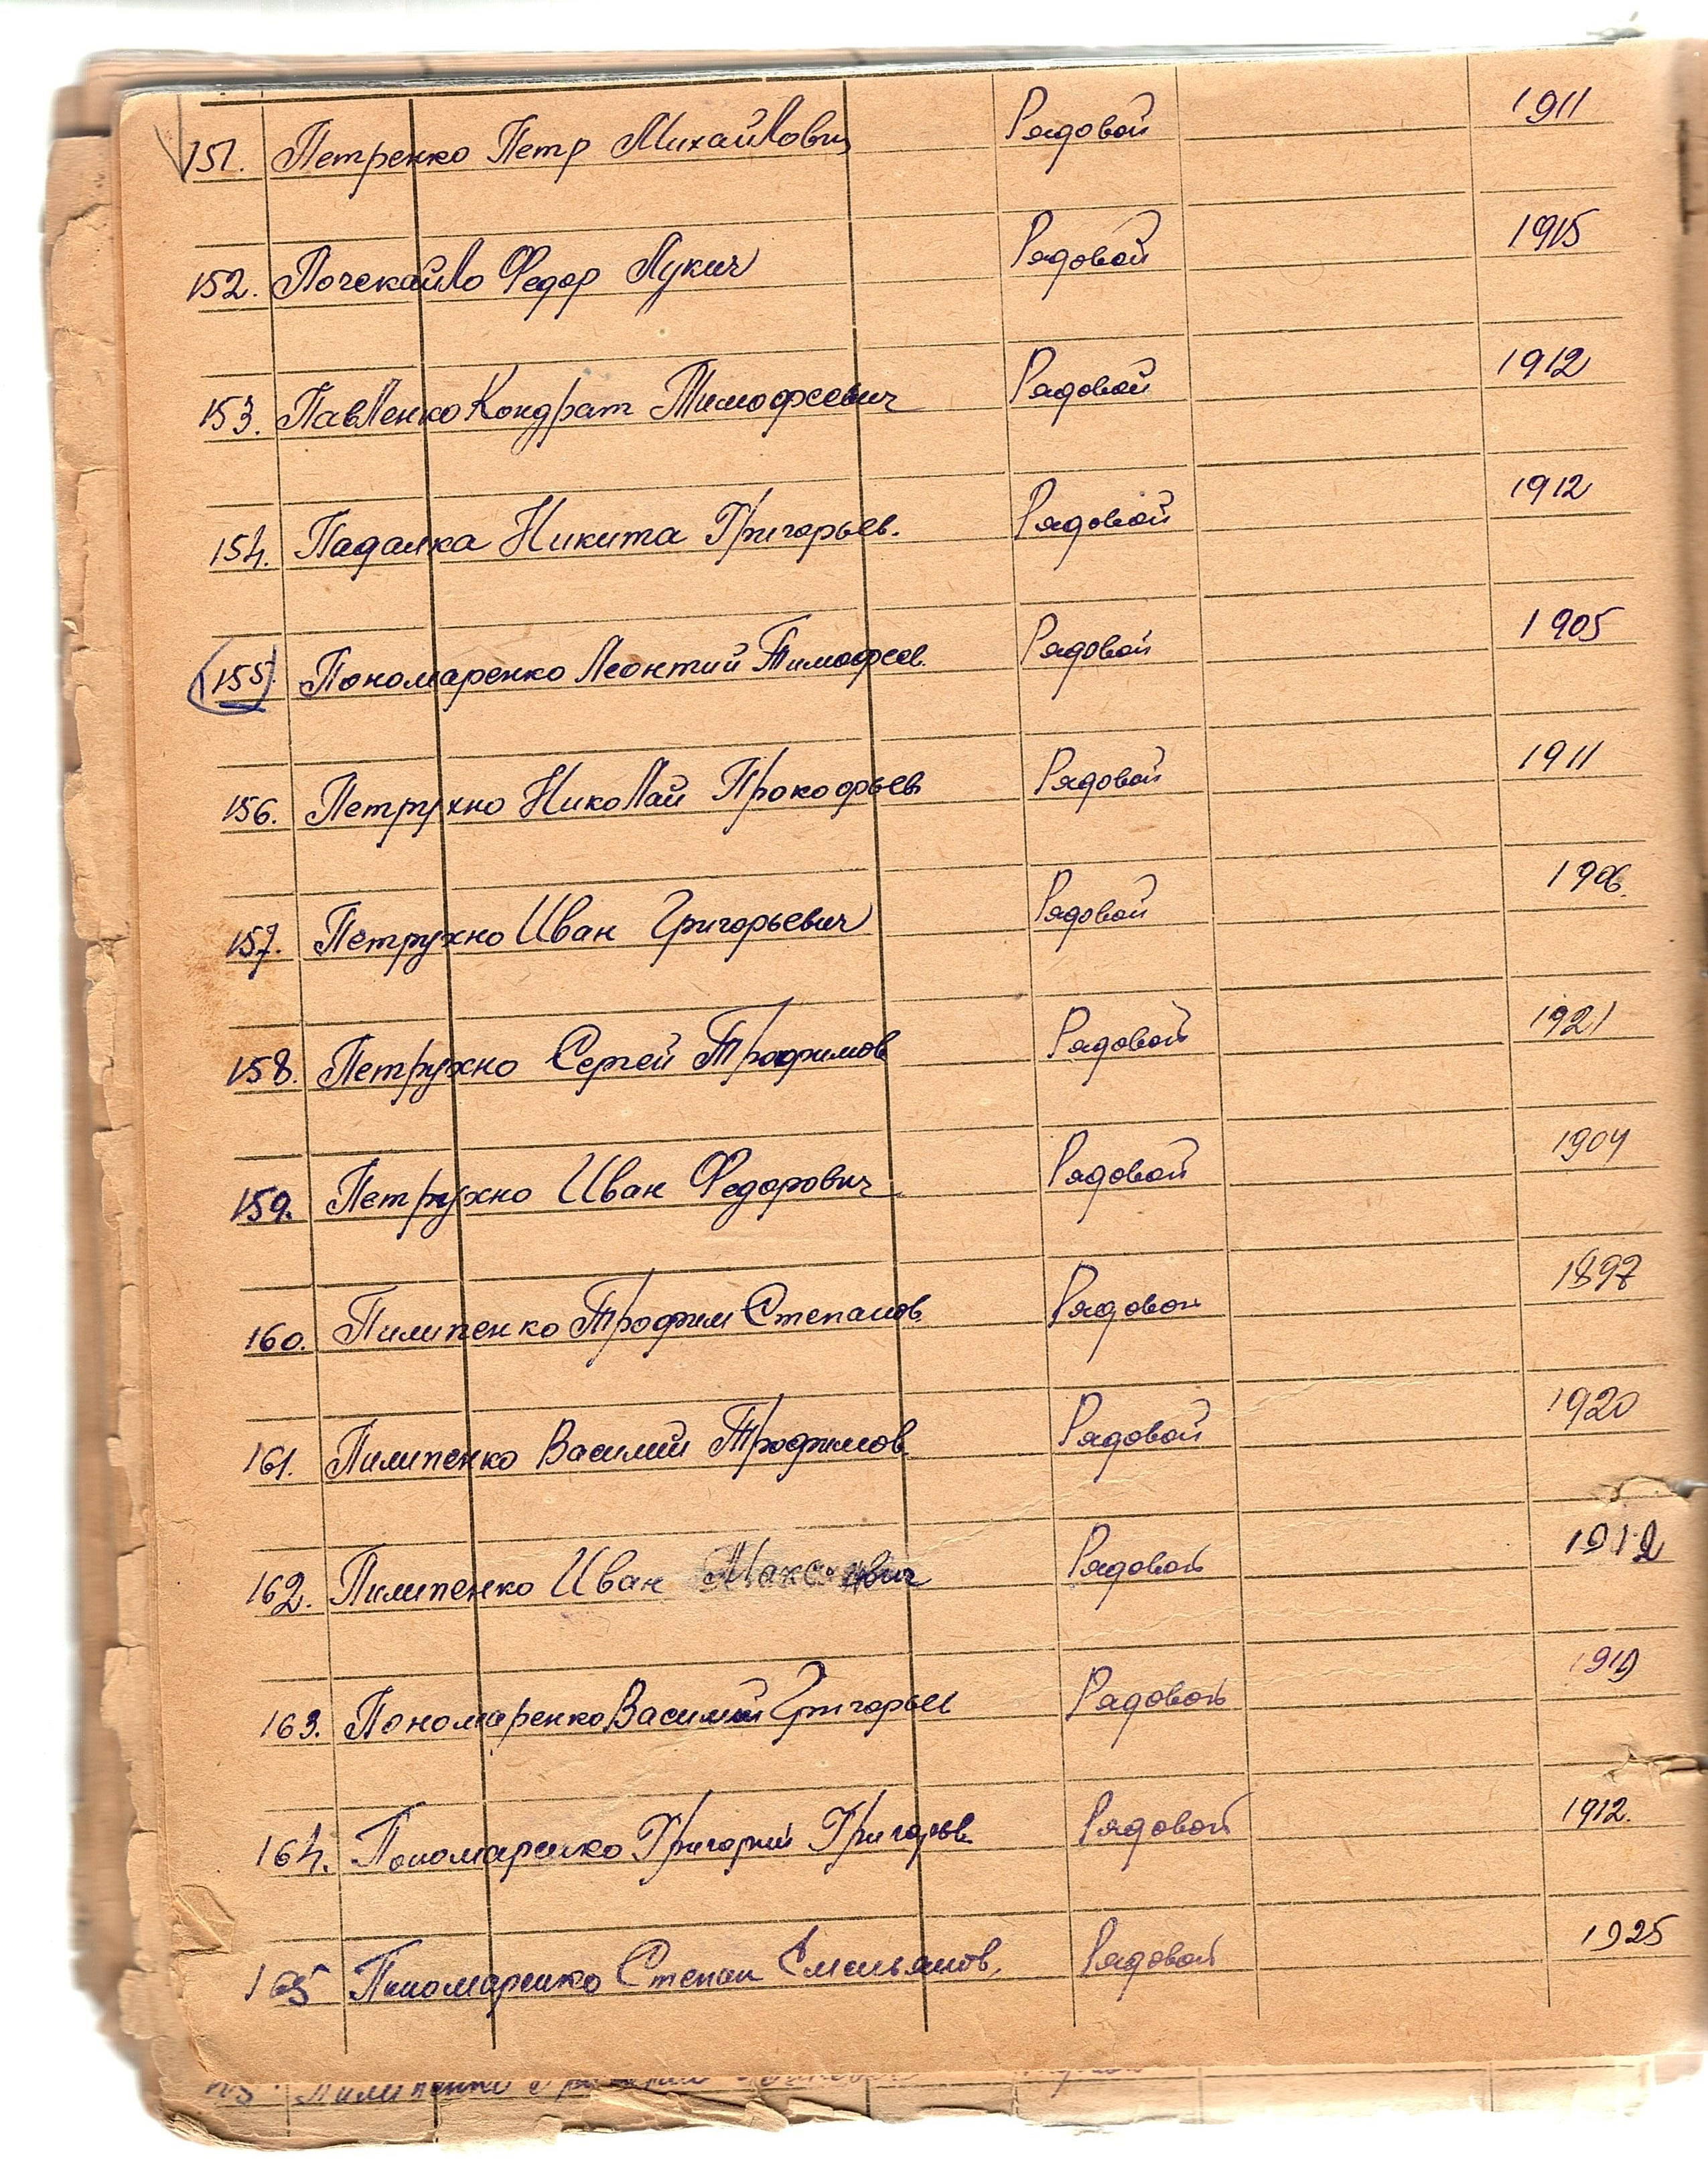 151. Петренко Петр Михайлович Рядовой 1911
152. Почекайло Федор Лукич Рядовой 1915
153. Павленко Кондрат Тимофеевич Рядовой 1912
154. Падалка Никита Григорьев. Рядовой 1912
155 Пономаренко Леонтий Тимофеев. Рядовой 1905
156. Петрухно Николай Прокофьев Рядовой 1911
157. Петрухно Иван Григорьевич Рядовой 1906.
158. Петрухно Сергей Трофимов Рядовой 1921
159. Петрухно Иван Федорович Рядовой 1904
160. Пилипенко Трофим Степанов. Рядовой 1897
161. Пилипенко Василий Трофимов Рядовой 1920
162. Пилипенко Иван Рядовой 1912
163. Пономаренко Василий Григорьев Рядовой 1919
164. Пономаренко Григорий Григорьев Рядовой 1912.
165 Пономаренко Степан Емельянов. Рядовой 1925
Пилипенко